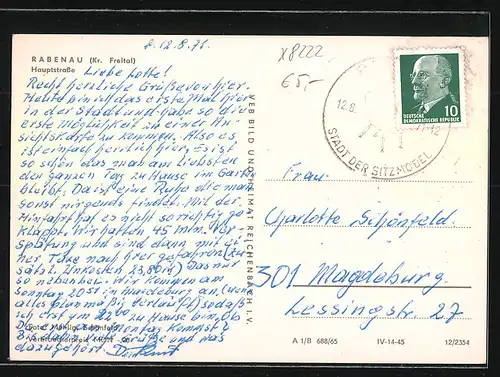 d. 12.8.71.
x8222
€5,-
RABENAU (Kr. Freital)
Hauptstraße
Liebe Lotte!
Recht herzliche Grüße von hier.
Heute bin ich das erste Mal hier
in der Stadt und habe so die
erste Möglichkeit zu einer An-
sichtskarte zu kommen. Also es
ist einfach herrlich hier, es ist
so schön das man am liebsten
den ganzen Tag zu Hause im Garten
bleibt. Da ist eine Ruhe die man
sonst nirgends findet. Mit der
Hinfahrt hat es nicht so richtig ge-
klappt. Wir hatten 45 min. Ver-
spätung und sind dann mit ei-
ner Taxe nach hier gefahren (zu-
sätzl. Unkosten 23,80 M) Das nur
so nebenbei. Wir kommen am
Sonntag 20 51 in Magdeburg an (wenn
alles planmäßig verläuft) sodaß
ich erst gm 22 00 zu Hause bin. Ob
Du Montag kommst?
Bis dahin viele Grüße und was
dazugehört.
VEB BILD UND HEIMAT REICHENBACH I. V.
12.8.
-12
STADT DER SITZMÖBEL
10
DEUTSCHE
DEMOKRATISCHE REPUBLIK
Frau
Charlotte Schönfeld
301 Magdeburg
Lessingstr. 27
A 1/B 688/65 IV-14-45 12/2354